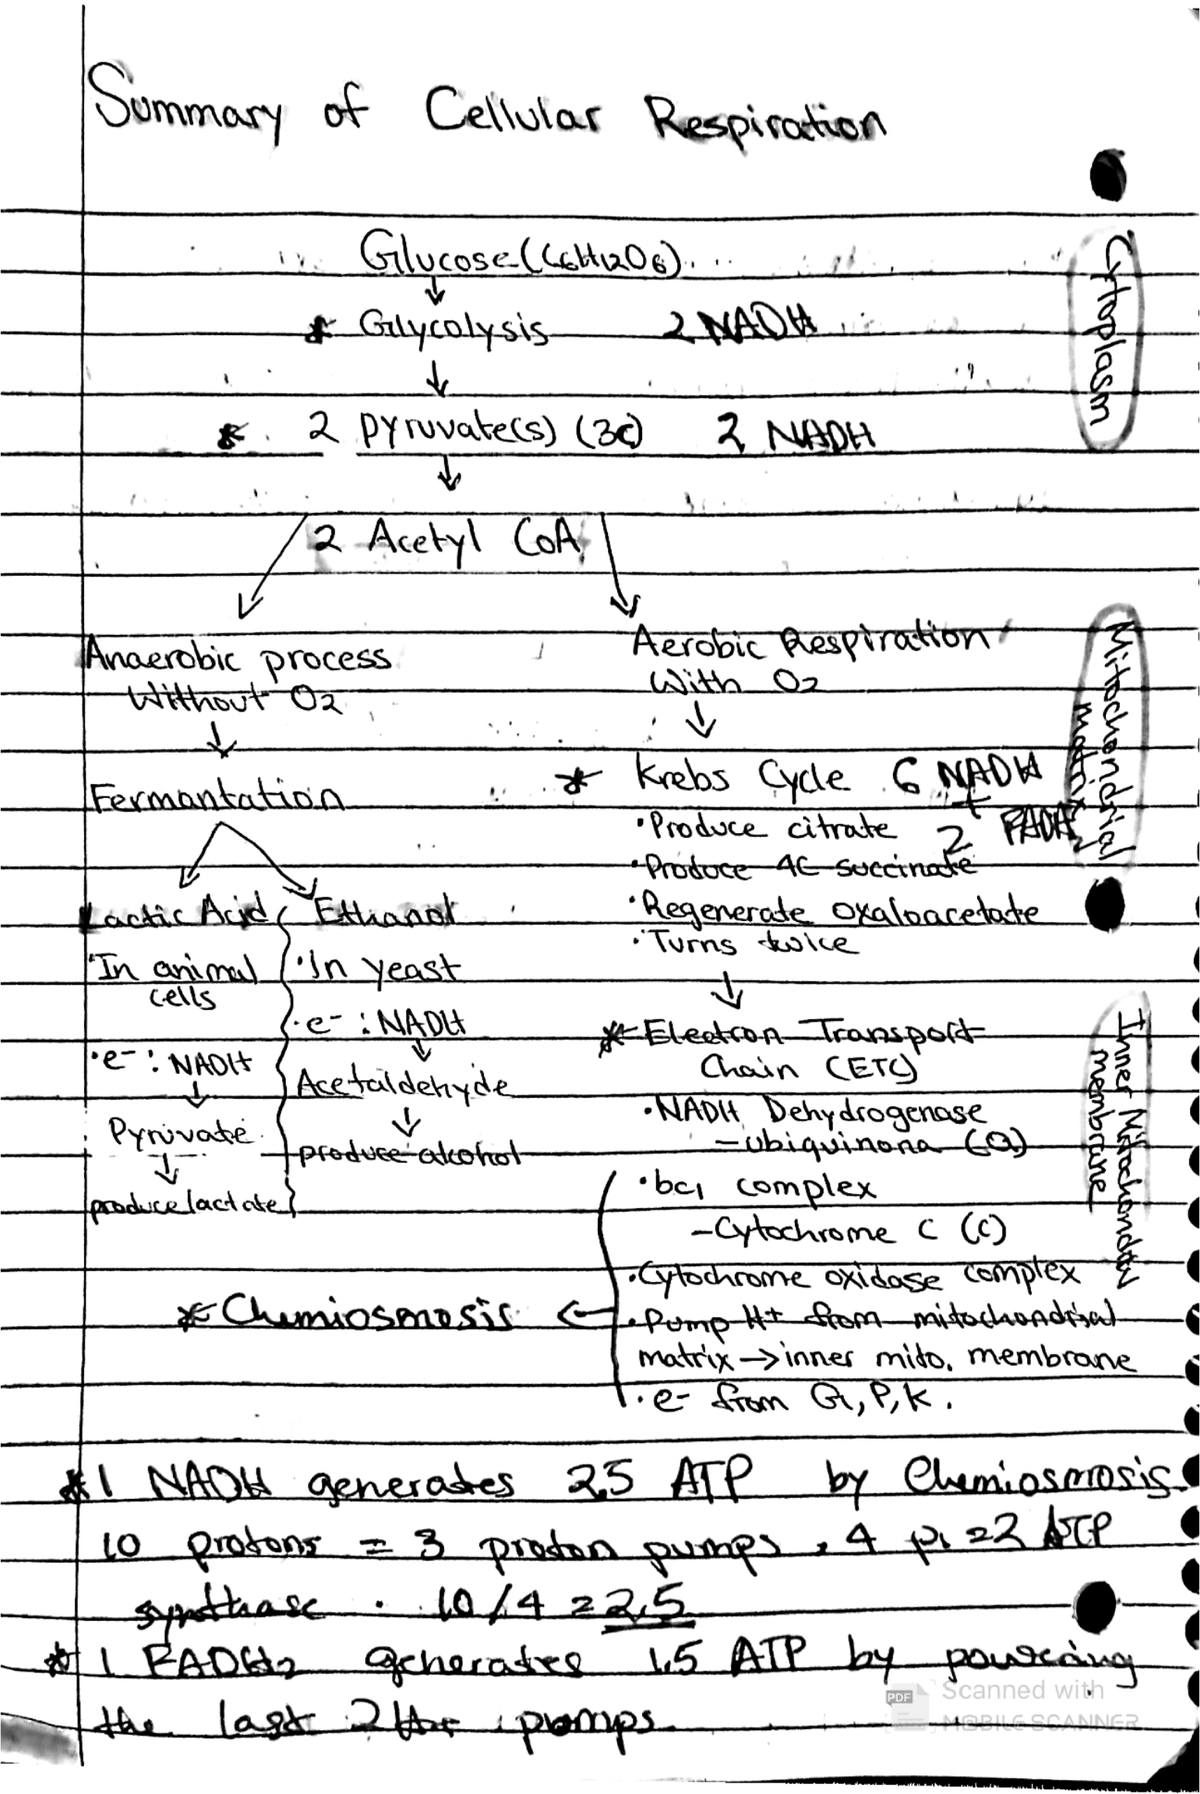 Summary of Cellular Respiration
Cytoplasm
Glucose (C6H12O6)
↓
* Glycolysis 2 NADH
↓
* 2 pyruvate(s) (3C) 2 NADH
↓
2 Acetyl CoA
Mitochondrial
matrix
Anaerobic process
Without O2
↓
Fermantation
Lactic Acid
• In animal
cells
• e- : NADH
↓
Pyruvate
↓
produce lactate
Ethanol
• In yeast
• e- : NADH
↓
Acetaldehyde
↓
produce alcohol
Aerobic Respiration
With O2
↓
* Krebs Cycle 6 NADH
+
• Produce citrate 2 FADH2
• Produce 4C succinate
• Regenerate oxaloacetate
• Turns twice
↓
Inner Mitochondrial
membrane
* Electron Transport
Chain (ETC)
• NADH Dehydrogenase
- ubiquinona (Q)
• bc1 complex
- Cytochrome C (C)
• Cytochrome oxidase complex
• Pump H+ from mitochondrial
matrix → inner mito. membrane
• e- from G, P, K.
* Chemiosmosis ←
* 1 NADH generates 2.5 ATP by Chemiosmosis.
10 protons = 3 proton pumps, 4 = ATP
synthase . 10/4 = 2.5
* 1 FADH2 generates 1.5 ATP by
the last 2 H+ pumps.
PDF Scanned with
MOBILE SCANNER